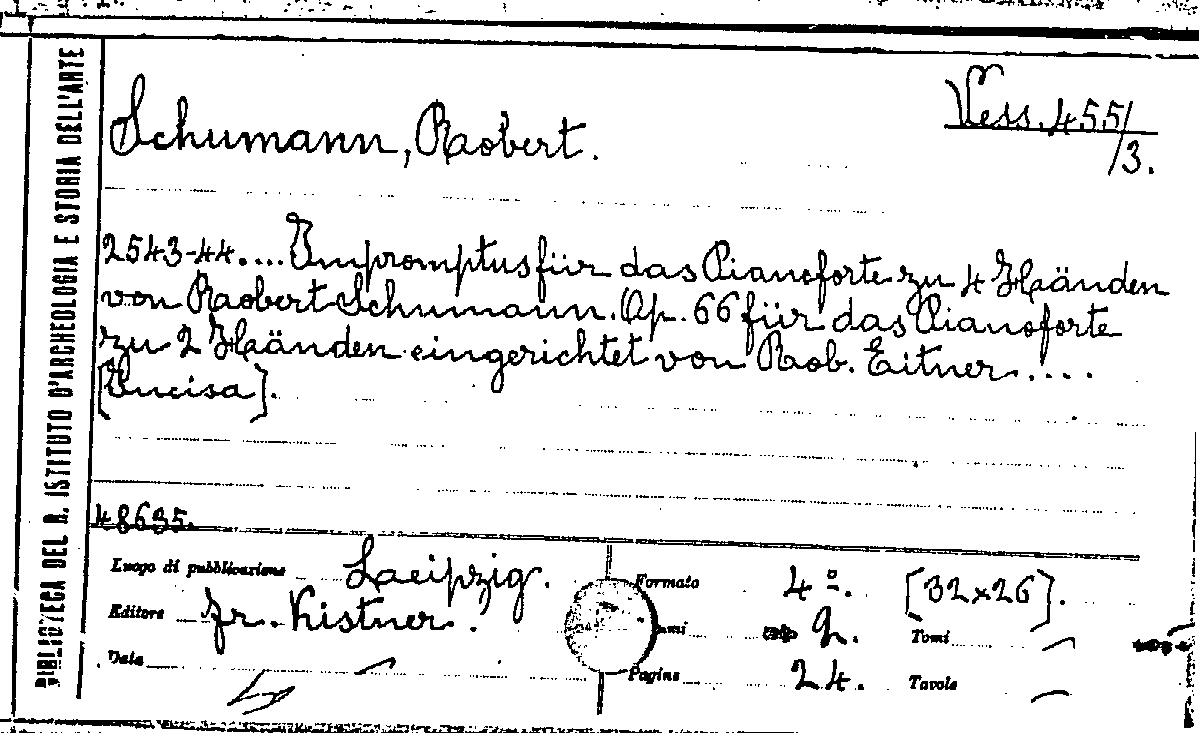 BIBLIOTECA DEL R. ISTITUTO D'ARCHEOLOGIA E STORIA DELL'ARTE
Schumann, Robert.
Vess. 455/
/3.
2543-44.... Impromptus für das Pianoforte zu 4 Händen
von Robert Schumann. Op. 66 für das Pianoforte
zu 2 Händen eingerichtet von Rob. Eitner....
[Incisa].
48635.
Luogo di pubblicazione Leipzig.
Editore Fr. Kistner.
Data —
Formato 4º. [32x26].
2. Tomi —
Pagine 24. Tavole —